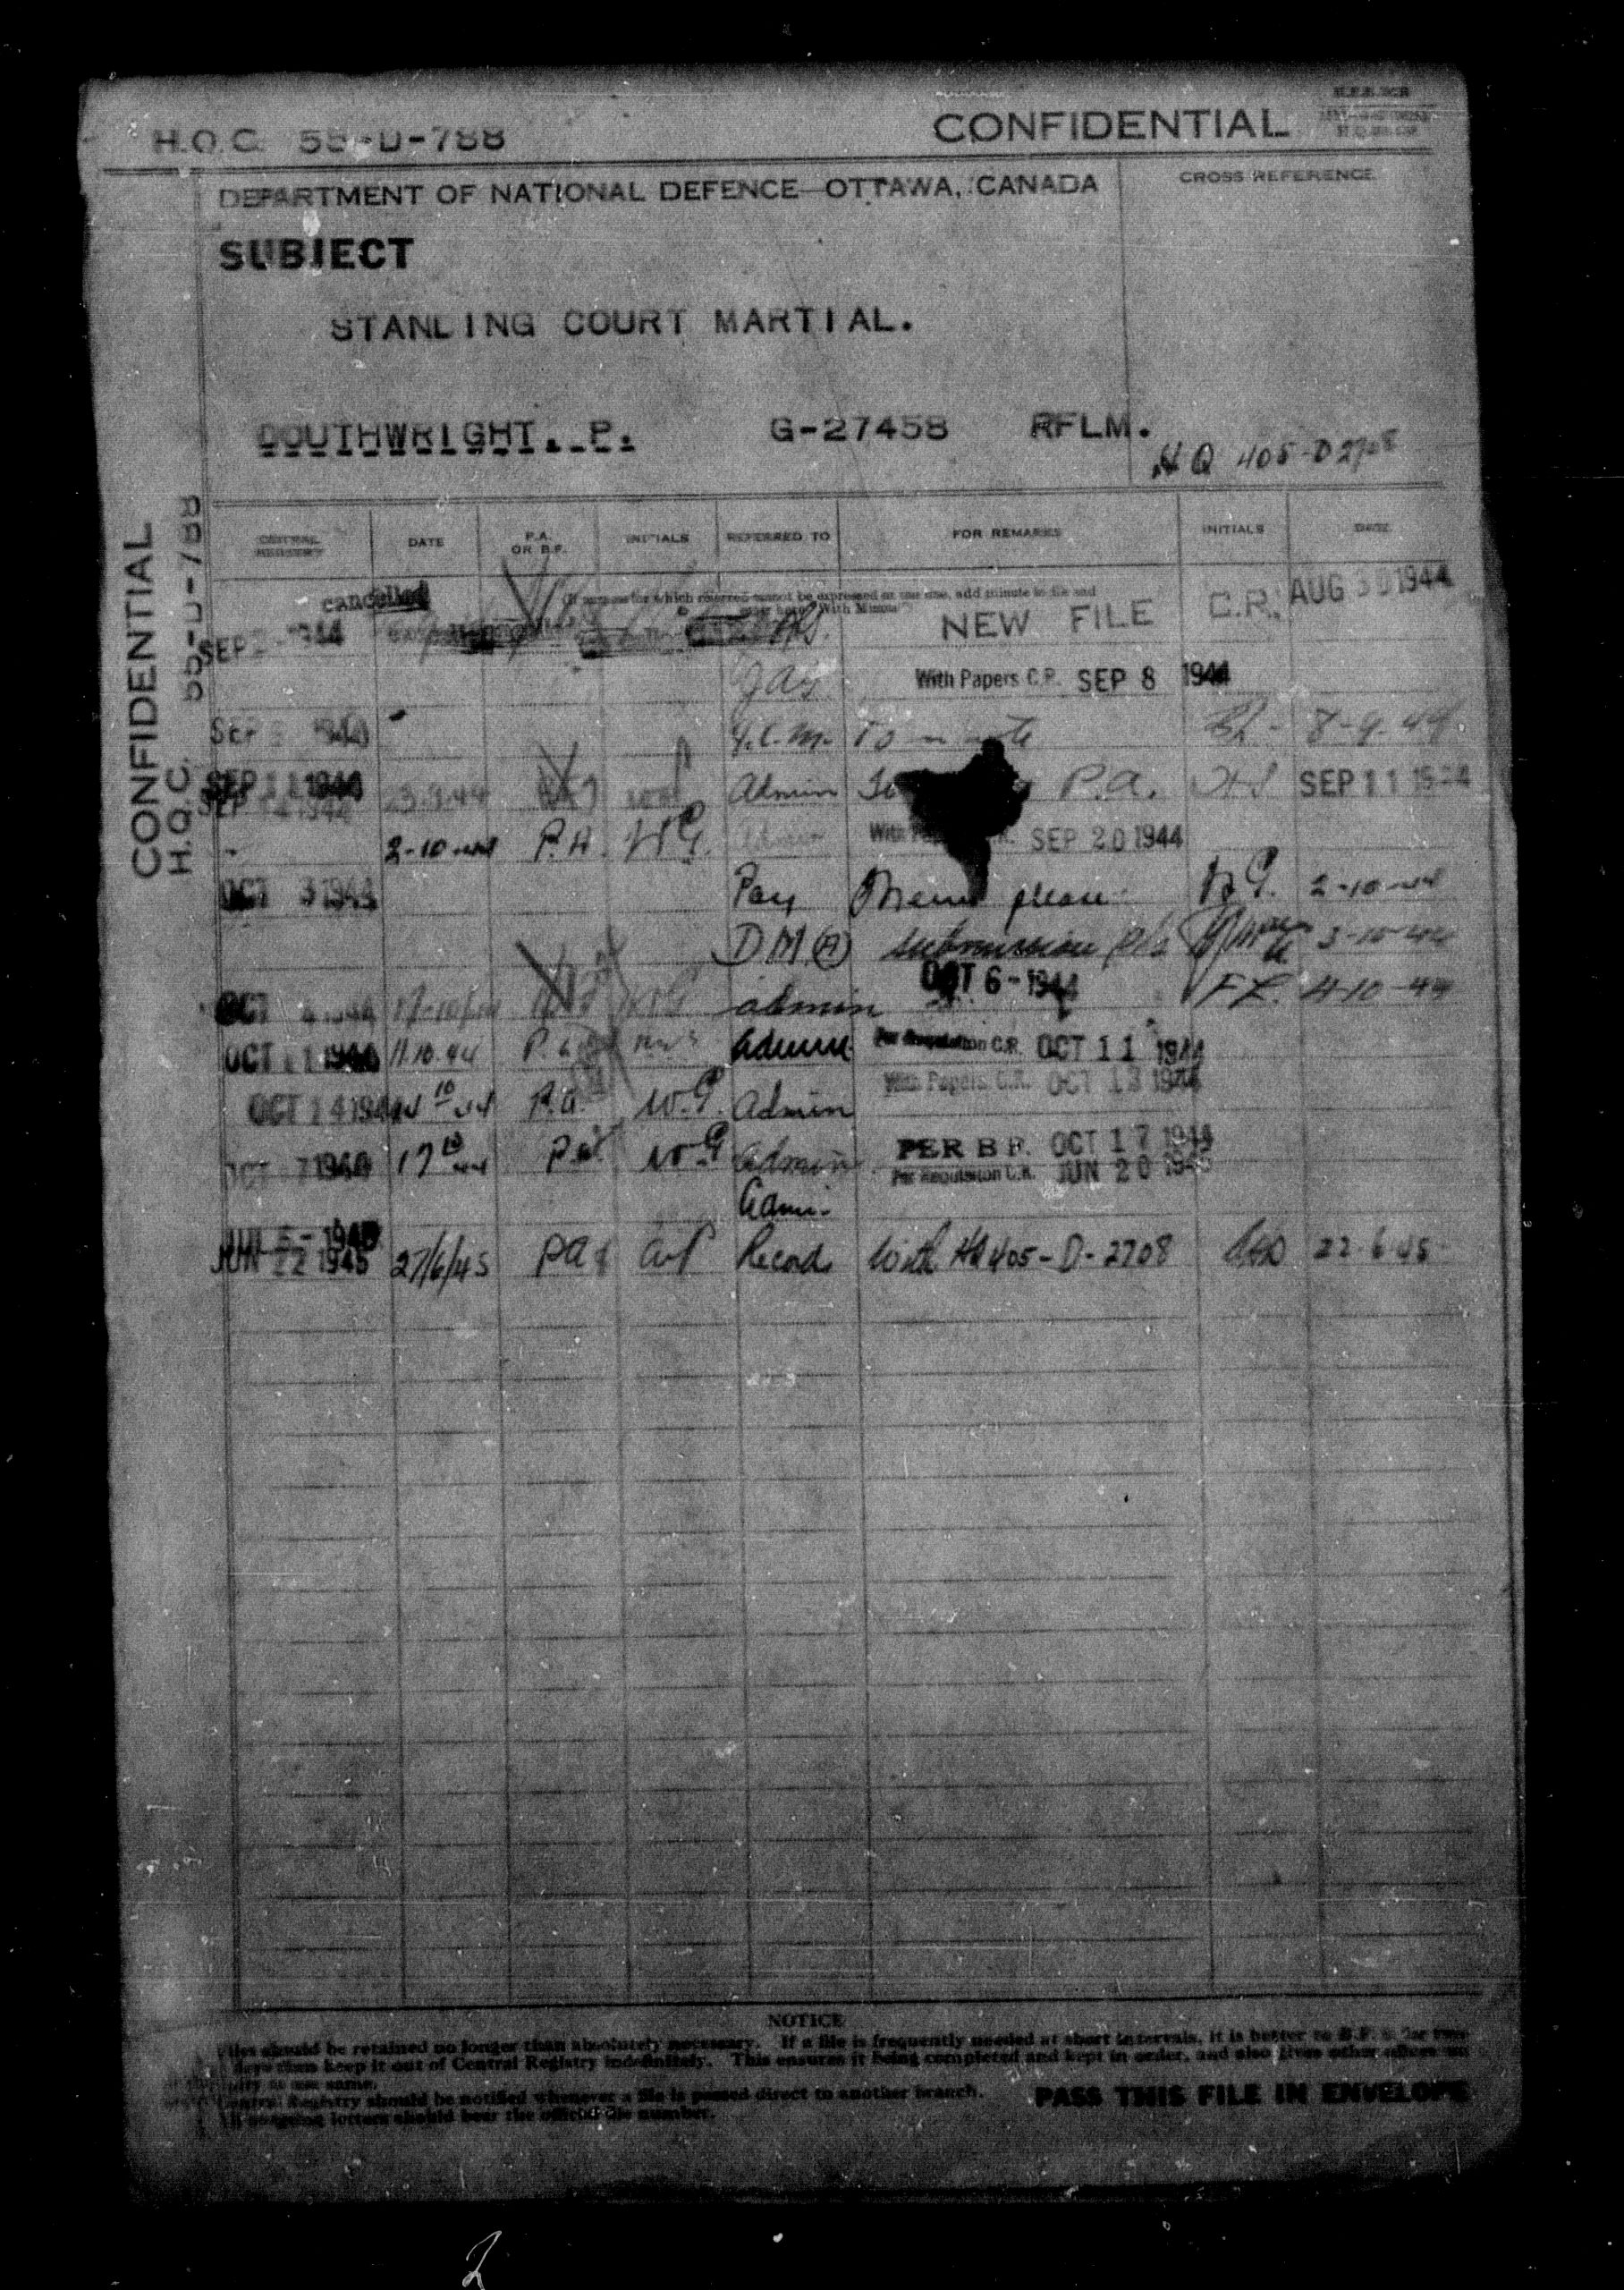 H.Q.C. 55-D-788 CONFIDENTIAL
DEPARTMENT OF NATIONAL DEFENCE—OTTAWA, CANADA CROSS REFERENCE
SUBJECT
STANDING COURT MARTIAL.
DOUTHWRIGHT, P. G-27458 RFLM.
HQ 405-D2708
CONFIDENTIAL
H.Q.C. 55-D-788
CENTRAL REGISTRY DATE P.A. OR B.F. INITIALS REFERRED TO FOR REMARKS INITIALS DATE
(If purpose for which referred cannot be expressed in one line, add minute to file and
enter here "With Minute")
cancelled
SEP 1944 NEW FILE C.R. AUG 30 1944
With Papers C.R. SEP 8 1944
SEP 1944 To note 8-9-44
SEP 11 1944 Admin P.A. SEP 11 1944
SEP 14 1944 23.9.44
2-10-44 P.A. W.G. Admin With SEP 20 1944
OCT 3 1944 Pay please 2-10-44
D M (A) submission pls 3-10-44
OCT 1944 admin OCT 6-1944 F.L. 4-10-44
OCT 11 1944 11.10.44 P.A. Admin Per Requisition C.R. OCT 11 1944
With Papers C.R. OCT 13 1944
OCT 14 1944 14 10 44 P.A. W.G. Admin
OCT 7 1944 17 10 44 P.A. W.G. Admin PER B F. OCT 17 1944
Per Requisition C.R. JUN 20 1945
Admin.
JUN 22 1945 27/6/45 PA Records With HQ 405-D-2708 22-6-45
NOTICE
Files should be retained no longer than absolutely necessary. If a file is frequently needed at short intervals, it is better to B.F. it for two
days than keep it out of Central Registry indefinitely. This ensures it being completed and kept in order, and also gives other offices
same.
Central Registry should be notified whenever a file is passed direct to another branch. PASS THIS FILE IN ENVELOPE
All outgoing letters should bear the official file number.
2